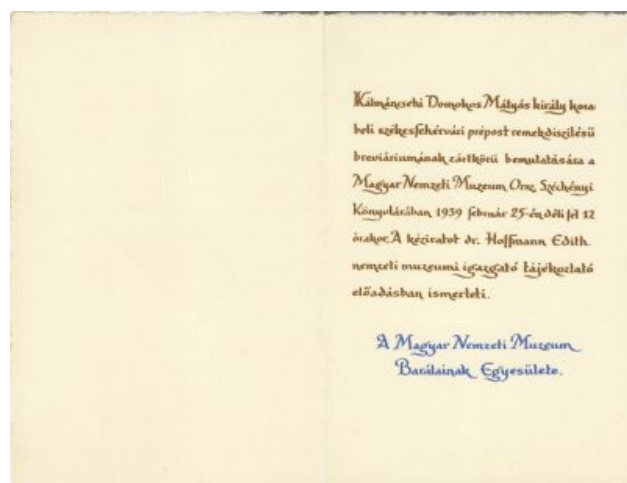 Kálmáncsehi Domokos Mátyás király kora-
beli székesfehérvári prépost remekdiszitésü
breviáriumának zártkörü bemutatására a
Magyar Nemzeti Muzeum Orsz. Széchényi
Könyvtárában 1939 február 25-én déli fél 12
órakor. A kéziratot dr. Hoffmann Edith
nemzeti muzeumi igazgató tájékoztató
előadásban ismerteti.
A Magyar Nemzeti Muzeum
Barátainak Egyesülete.